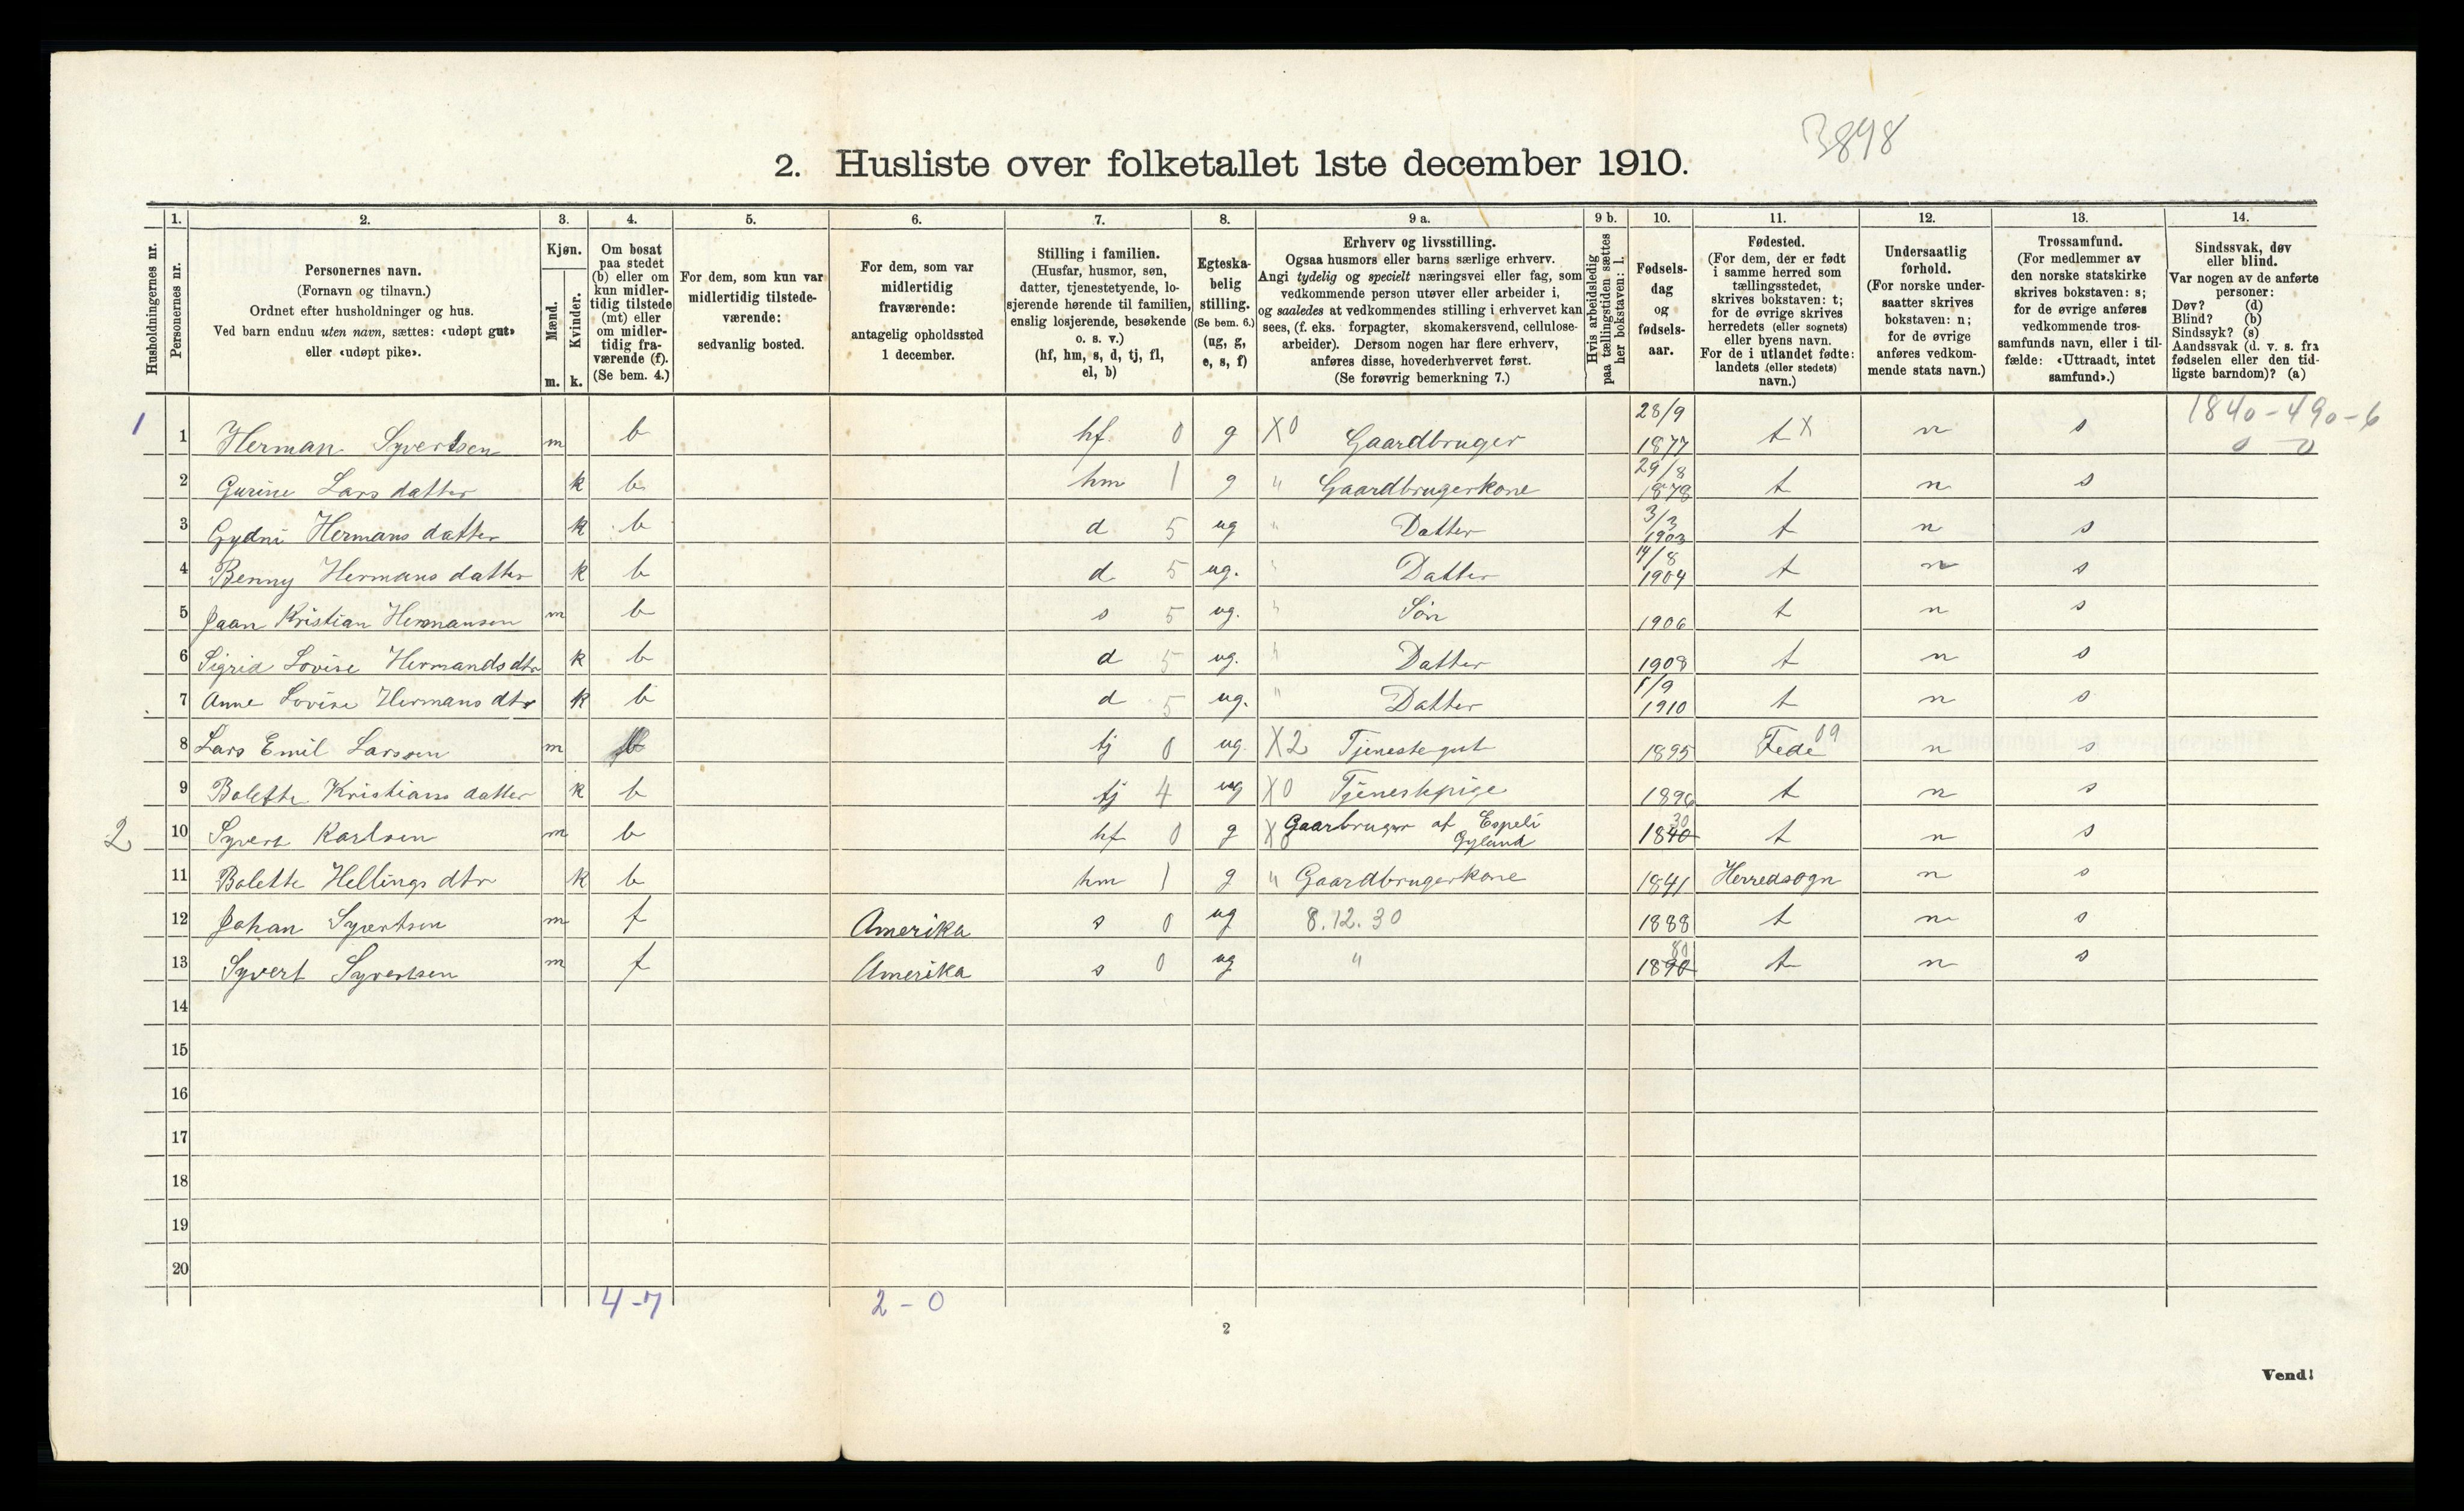 3898
2. Husliste over folketallet 1ste december 1910.
1. 2. 3. 4. 5. 6. 7. 8. 9 a. 9 b. 10. 11. 12. 13. 14.
Husholdningernes nr.
Personernes nr.
Personernes navn.
(Fornavn og tilnavn.)
Ordnet efter husholdninger og hus.
Ved barn endnu uten navn, sættes: «udøpt gut»
eller «udøpt pike».
Kjøn.
Mænd.
Kvinder.
m. k.
Om bosat
paa stedet
(b) eller om
kun midler-
tidig tilstede
(mt) eller
om midler-
tidig fra-
værende (f).
(Se bem. 4.)
For dem, som kun var
midlertidig tilstede-
værende:
sedvanlig bosted.
For dem, som var
midlertidig
fraværende:
antagelig opholdssted
1 december.
Stilling i familien.
(Husfar, husmor, søn,
datter, tjenestetyende, lo-
sjerende hørende til familien,
enslig losjerende, besøkende
o. s. v.)
(hf, hm, s, d, tj, fl,
el, b)
Egteska-
belig
stilling.
(Se bem. 6.)
(ug, g,
e, s, f)
Erhverv og livsstilling.
Ogsaa husmors eller barns særlige erhverv.
Angi tydelig og specielt næringsvei eller fag, som
vedkommende person utøver eller arbeider i,
og saaledes at vedkommendes stilling i erhvervet kan
sees, (f. eks. forpagter, skomakersvend, cellulose-
arbeider). Dersom nogen har flere erhverv,
anføres disse, hovederhvervet først.
(Se forøvrig bemerkning 7.)
Hvis arbeidsledig
paa tællingstiden sættes
her bokstaven: l.
Fødsels-
dag
og
fødsels-
aar.
Fødested.
(For dem, der er født
i samme herred som
tællingsstedet,
skrives bokstaven: t;
for de øvrige skrives
herredets (eller sognets)
eller byens navn.
For de i utlandet fødte:
landets (eller stedets)
navn.)
Undersaatlig
forhold.
(For norske under-
saatter skrives
bokstaven: n;
for de øvrige
anføres vedkom-
mende stats navn.)
Trossamfund.
(For medlemmer av
den norske statskirke
skrives bokstaven: s;
for de øvrige anføres
vedkommende tros-
samfunds navn, eller i til-
fælde: «Uttraadt, intet
samfund».)
Sindssvak, døv
eller blind.
Var nogen av de anførte
personer:
Døv? (d)
Blind? (b)
Sindssyk? (s)
Aandssvak (d. v. s. fra
fødselen eller den tid-
ligste barndom)? (a)
1840-490-6
0 0
1 1 Herman Syvertsen m b hf 0 g X0 Gaardbruger 28/9 1877 t X n s
2 Gurine Larsdatter k b hm 1 g " Gaardbrugerkone 29/8 1878 t n s
3 Gydni Hermansdatter k b d 5 ug " Datter 3/3 1903 t n s
4 Benny Hermansdatter k b d 5 ug. " Datter 14/8 1904 t n s
5 Jaan Kristian Hermansen m b s 5 ug. " Søn 1906 t n s
6 Sigrid Lovise Hermandsdtr k b d 5 ug. " Datter 1908 t n s
7 Anne Lovise Hermansdtr k b d 5 ug. " Datter 1/9 1910 t n s
8 Lars Emil Larssen m b tj 0 ug. X2 Tjenestegut 1895 Fede 09 n s
9 Bolette Kristiansdatter k b tj 4 ug X0 Tjenestepige 1896 t n s
2 10 Syvert Karlsen m b hf 0 g X0 Gaarbruger af Espeli Gyland 1840 30 t n s
11 Bolette Hellings dtr k b hm 1 g " Gaardbrugerkone 1841 Herredsogn n s
12 Johan Syvertsen m f Amerika s 0 ug 8.12.30 1888 t n s
13 Syvert Syvertsen m f Amerika s 0 ug " 1890 80 t n s
14
15
16
17
18
19
20
4-7 2-0
2
Vend!